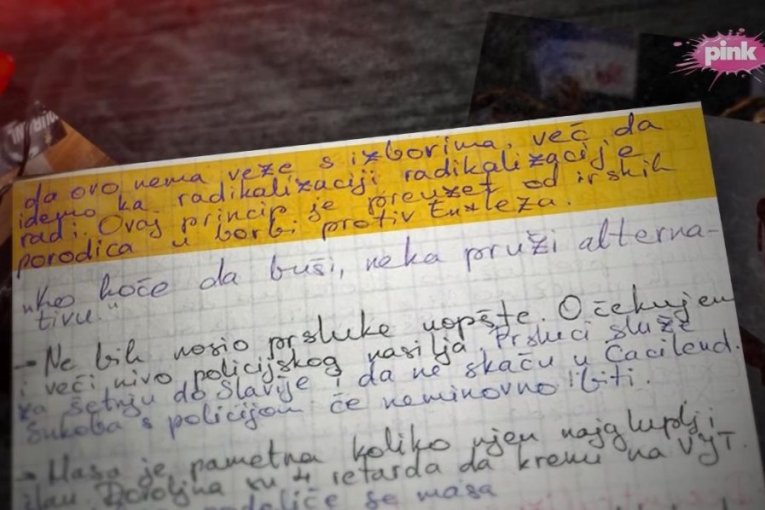 pink
da ovo nema veze s izborima, već da
idemo ka radikalizaciji radikalizacije
radi. Ovaj princip je preuzet od irskih
porodica u borbi protiv Engleza.
"Ko hoće da buši, neka pruži alterna-
tivu."
- Ne bih nosio prsluke uopšte. Očekujem
i veći nivo policijskog nasilja. Prsluci služe
za šetnju do Slavije i da ne skaču u Ćacilend.
Sukoba s policijom će neminovno biti.
- Masa je pametna koliko njen najgluplji
član. Dovoljna su 4 retarda da krenu na
se masa